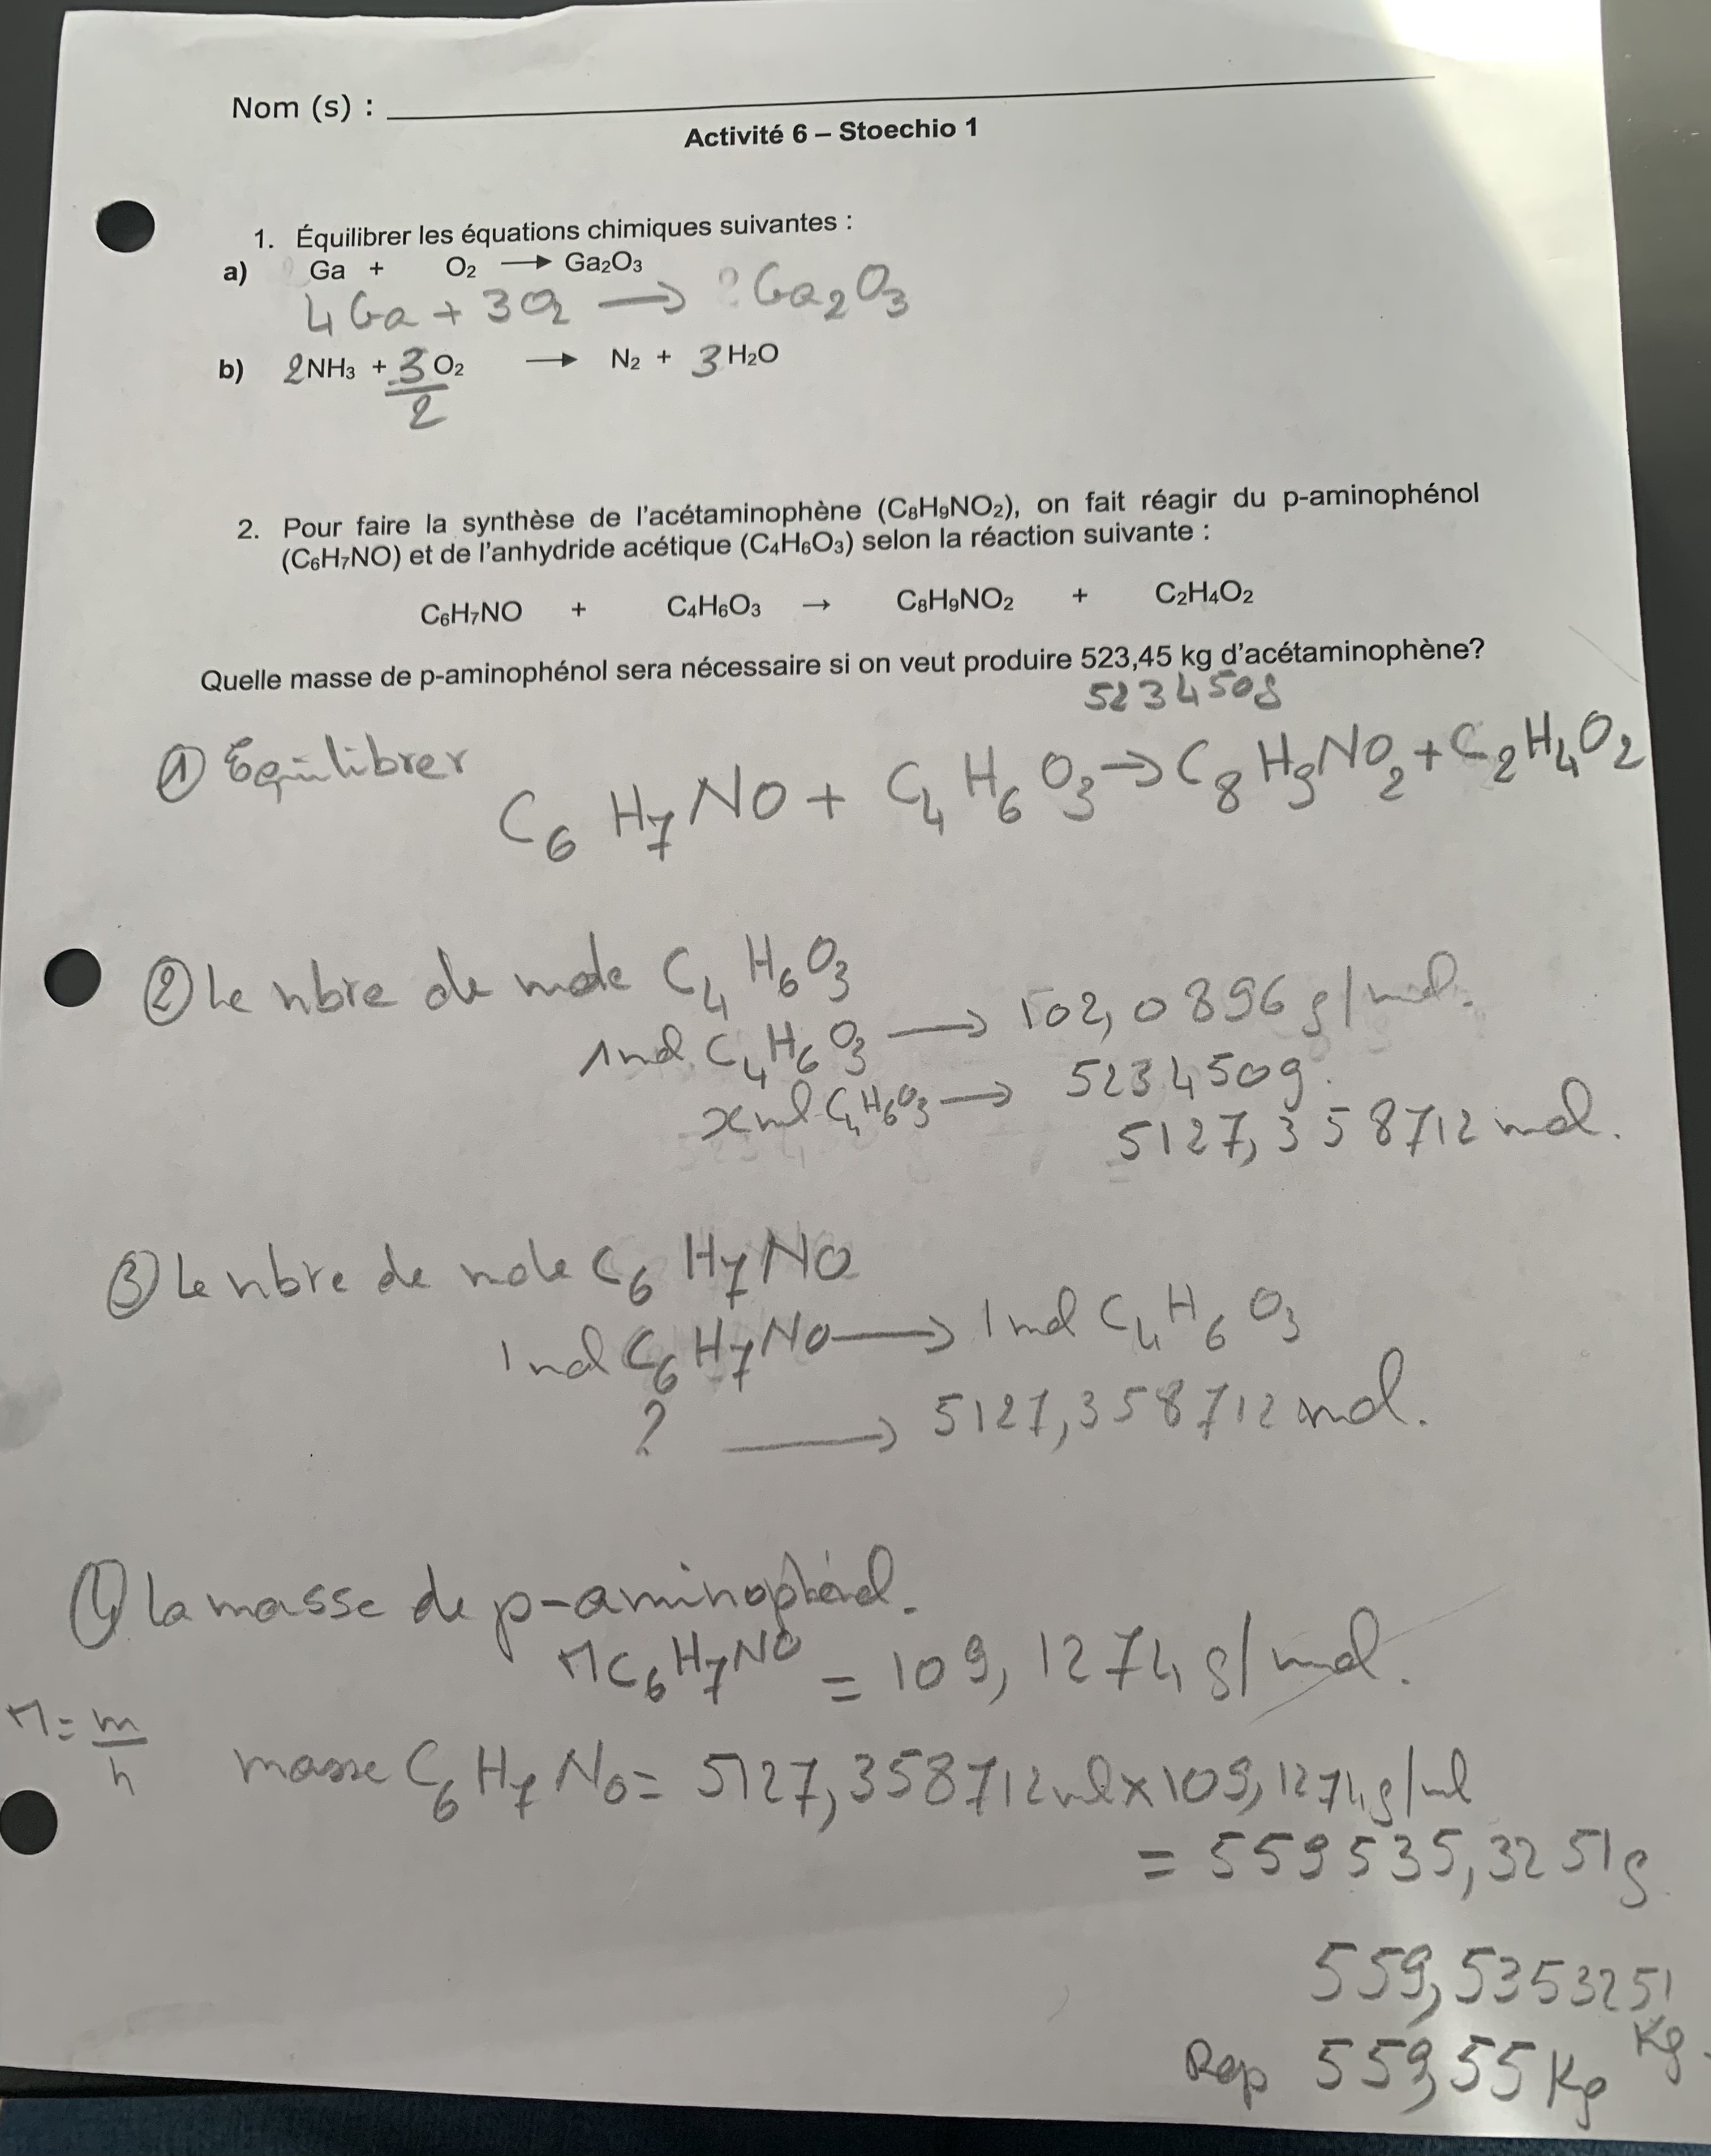 Nom (s) :
Activité 6 – Stoechio 1
1. Équilibrer les équations chimiques suivantes :
a) Ga + O₂ → Ga₂O₃
4Ga + 3O₂ → 2Ga₂O₃
b) 2NH₃ + 3/2 O₂ → N₂ + 3H₂O
2. Pour faire la synthèse de l'acétaminophène (C₈H₉NO₂), on fait réagir du p-aminophénol
(C₆H₇NO) et de l'anhydride acétique (C₄H₆O₃) selon la réaction suivante :
C₆H₇NO + C₄H₆O₃ → C₈H₉NO₂ + C₂H₄O₂
Quelle masse de p-aminophénol sera nécessaire si on veut produire 523,45 kg d'acétaminophène?
523450g
① Equilibrer
C₆H₇NO + C₄H₆O₃ → C₈H₉NO₂ + C₂H₄O₂
② Le nbre de mole C₄H₆O₃
1mol C₄H₆O₃ → 102,0896 g/mol.
x mol C₄H₆O₃ → 523450g.
5127,358712 mol.
③ Le nbre de mole C₆H₇NO
1 mol C₆H₇NO → 1 mol C₄H₆O₃
? → 5127,358712 mol.
④ La masse de p-aminophénol.
M C₆H₇NO = 109,1274 g/mol.
M = m/n
masse C₆H₇NO = 5127,358712 mol x 109,1274 g/mol
= 559535,3251g
559,5353251
Kg.
Rep 559,55 Kg